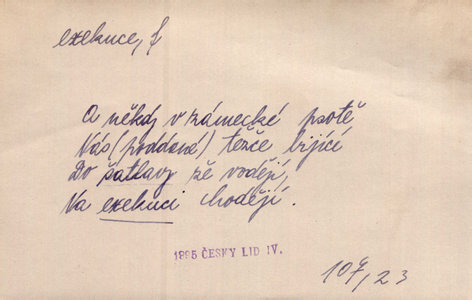 exekuce, f
A někdy v zámecké psotě
Nás (poddané) težce bijící
Do šatlavy zě vodějí,
Na exekuci chodějí.
1895 ČESKY LID IV.
109, 23